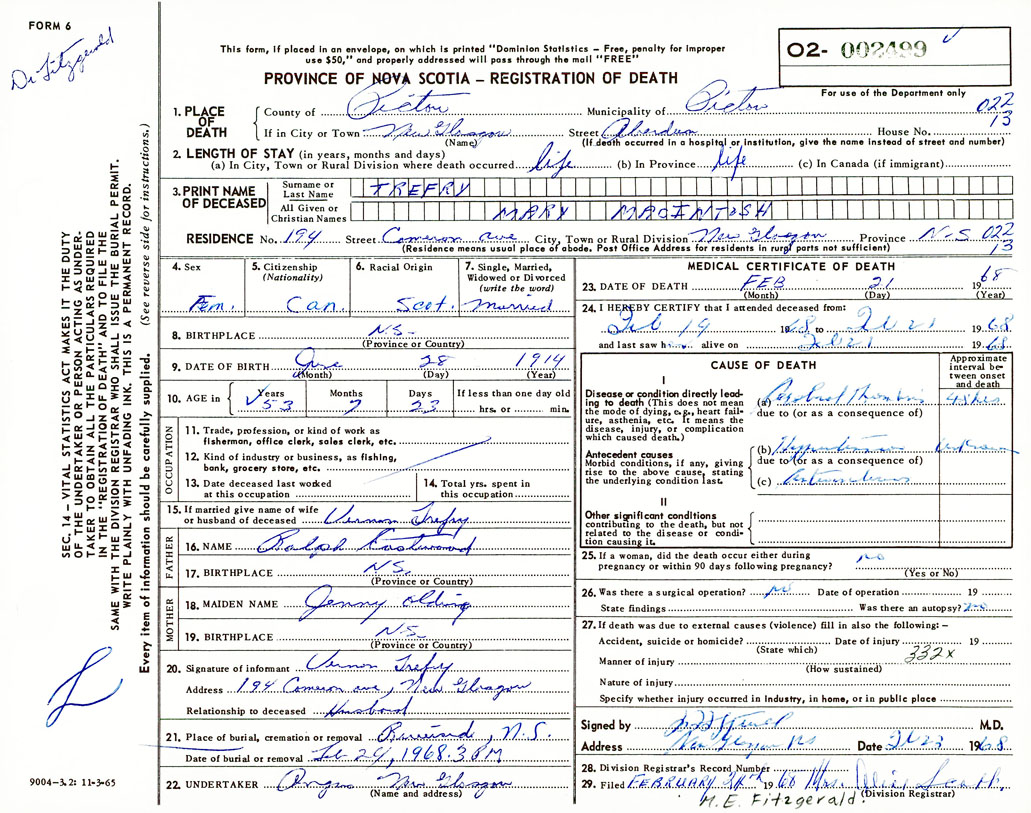 FORM 6
Dr Fitzgerald
This form, if placed in an envelope, on which is printed "Dominion Statistics – Free, penalty for improper
use $50," and properly addressed will pass through the mail "FREE"
O2- 002499
PROVINCE OF NOVA SCOTIA – REGISTRATION OF DEATH
For use of the Department only
1. PLACE OF DEATH County of Pictou Municipality of Pictou 022
If in City or Town New Glasgow Street Aberdeen House No. 13
(Name) (If death occurred in a hospital or institution, give the name instead of street and number)
2. LENGTH OF STAY (in years, months and days)
(a) In City, Town or Rural Division where death occurred life (b) In Province life (c) In Canada (if immigrant)
3. PRINT NAME OF DECEASED Surname or Last Name TREFRY
All Given or Christian Names MARY MACINTOSH
RESIDENCE No. 194 Street Cameron ave City, Town or Rural Division New Glasgow Province N-S 022
(Residence means usual place of abode. Post Office Address for residents in rural parts not sufficient) 13
4. Sex Fem.
5. Citizenship (Nationality) Can.
6. Racial Origin Scot.
7. Single, Married, Widowed or Divorced (write the word) Married
8. BIRTHPLACE NS-
(Province or Country)
9. DATE OF BIRTH 28 1914
(Month) (Day) (Year)
10. AGE in Years 53 Months 7 Days 23 If less than one day old
hrs. or min.
OCCUPATION
11. Trade, profession, or kind of work as
fisherman, office clerk, sales clerk, etc.
12. Kind of industry or business, as fishing,
bank, grocery store, etc.
13. Date deceased last worked
at this occupation
14. Total yrs. spent in
this occupation
15. If married give name of wife
or husband of deceased Vernon Trefry
FATHER
16. NAME Ralph Eastwood
17. BIRTHPLACE NS.
(Province or Country)
MOTHER
18. MAIDEN NAME Jenny Olding
19. BIRTHPLACE NS-
(Province or Country)
20. Signature of informant Vernon Trefry
Address 194 Cameron ave, New Glasgow
Relationship to deceased Husband
21. Place of burial, cremation or removal N.S.
Date of burial or removal Feb 24, 1968. 3 PM
22. UNDERTAKER Angus New Glasgow
(Name and address)
MEDICAL CERTIFICATE OF DEATH
23. DATE OF DEATH FEB 21 1968
(Month) (Day) (Year)
24. I HEREBY CERTIFY that I attended deceased from:
Feb 19 1968 to Feb 21 1968
and last saw h alive on Feb 21 1968
CAUSE OF DEATH
Approximate interval between onset and death
I
Disease or condition directly leading to death (This does not mean
the mode of dying, e.g., heart failure, asthenia, etc. It means the
disease, injury, or complication
which caused death.)
(a) Cerebral Thrombosis 48 hrs
due to (or as a consequence of)
Antecedent causes
Morbid conditions, if any, giving
rise to the above cause, stating
the underlying condition last.
(b) Hypertension unknown
due to (or as a consequence of)
(c)
II
Other significant conditions
contributing to the death, but not
related to the disease or condition causing it.
25. If a woman, did the death occur either during
pregnancy or within 90 days following pregnancy? no
(Yes or No)
26. Was there a surgical operation? no Date of operation 19
State findings Was there an autopsy? no
27. If death was due to external causes (violence) fill in also the following: –
Accident, suicide or homicide? Date of injury 19
(State which) 332x
Manner of injury
(How sustained)
Nature of injury
Specify whether injury occurred in industry, in home, or in public place
Signed by M.D.
Address New Glasgow NS Date Feb 23 1968
28. Division Registrar's Record Number
29. Filed FEBRUARY 24th 1968 Mrs.
(Division Registrar)
M. E. Fitzgerald.
SEC. 14 – VITAL STATISTICS ACT MAKES IT THE DUTY
OF THE UNDERTAKER OR PERSON ACTING AS UNDER-
TAKER TO OBTAIN ALL THE PARTICULARS REQUIRED
IN THE "REGISTRATION OF DEATH" AND TO FILE THE
SAME WITH THE DIVISION REGISTRAR WHO SHALL ISSUE THE BURIAL PERMIT.
WRITE PLAINLY WITH UNFADING INK. THIS IS A PERMANENT RECORD.
Every item of information should be carefully supplied. (See reverse side for instructions.)
9004-3.2: 11-3-65